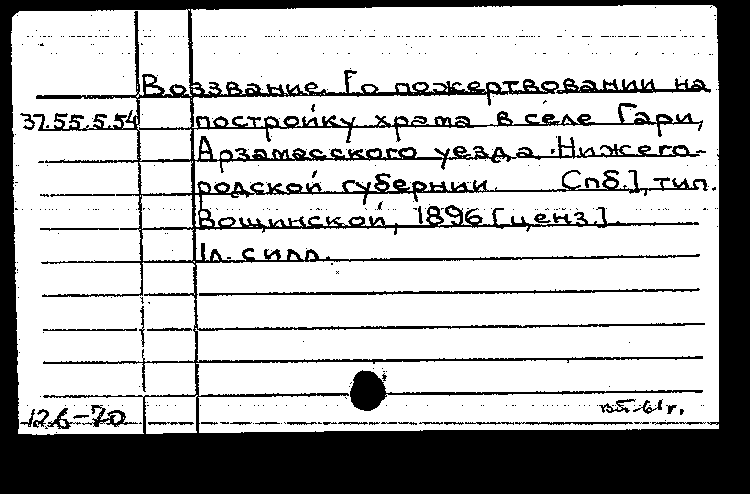 Воззвание. [О пожертвовании на
37.55.5.54 постройку храма в селе Гари,
Арзамасского уезда Нижего-
родской губернии. Спб.], тип.
Вощинской, 1896 [ценз.].
1л. с илл.
126-70